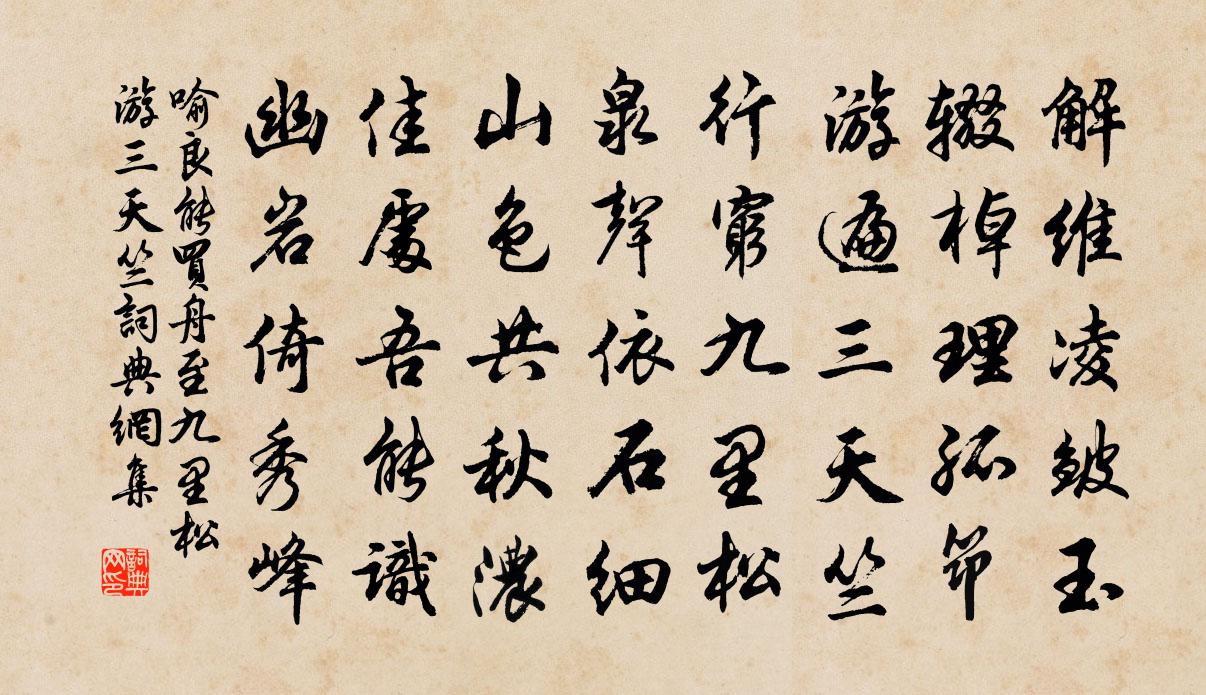 解維凌皺玉
輟棹理孤筇
游遍三天竺
行窮九里松
泉聲依石細
山色共秋濃
佳處吾能識
幽岩倚秀峰
喻良能買舟至九里松
游三天竺詞典網集
詞典
网印